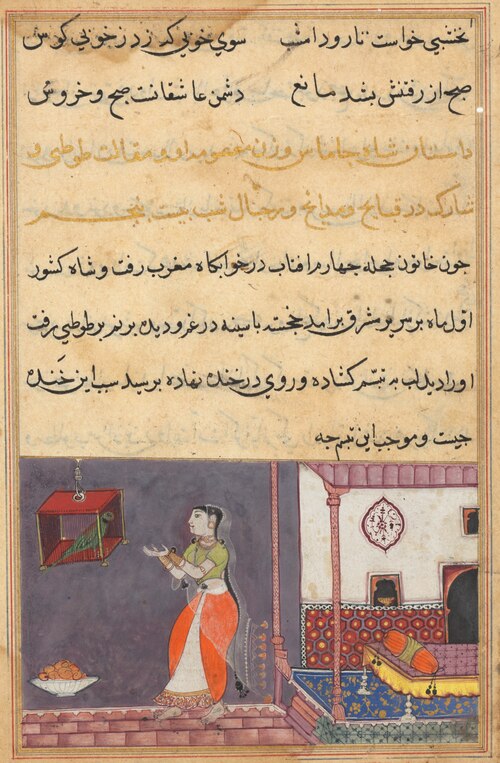 نخشبی خواست تا رود امشب سوی خوبی که زد ز خوبی کوس
صبح از رفتنش بشد مانع دشمن عاشقانست صبح و خروس
داستان شاه و جاماس وزن معصوم او و مقالت طوطی و
شارک در قبایح و مدایح و رجال شب بیست پنجم
چون خاتون حجله چهارم افتاب در خوابگاه مغرب رفت و شاه کشور
اول ماه بر سریر شرق برامد خجسته با سینه در غم و دیده بر نم بر طوطی رفت
او را دید لب به تبسم کشاده و روی در خنده نهاده پرسید سبب این خنده
چیست و موجب این تبسم چه